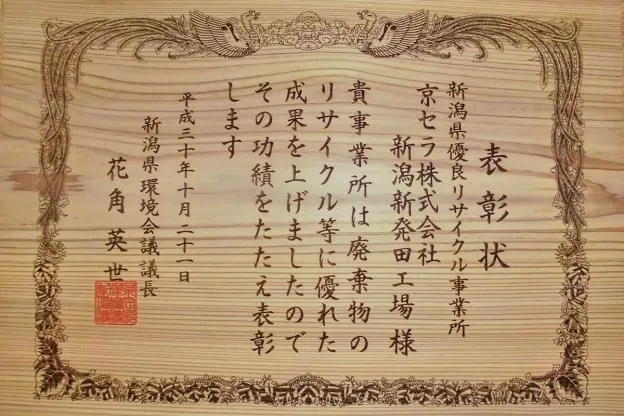 表彰状
新潟県優良リサイクル事業所
京セラ株式会社
新潟新発田工場様
貴事業所は廃棄物の
リサイクル等に優れた
成果を上げましたので
その功績をたたえ表彰
します
平成三十年十月二十一日
新潟県環境会議議長
花角英世